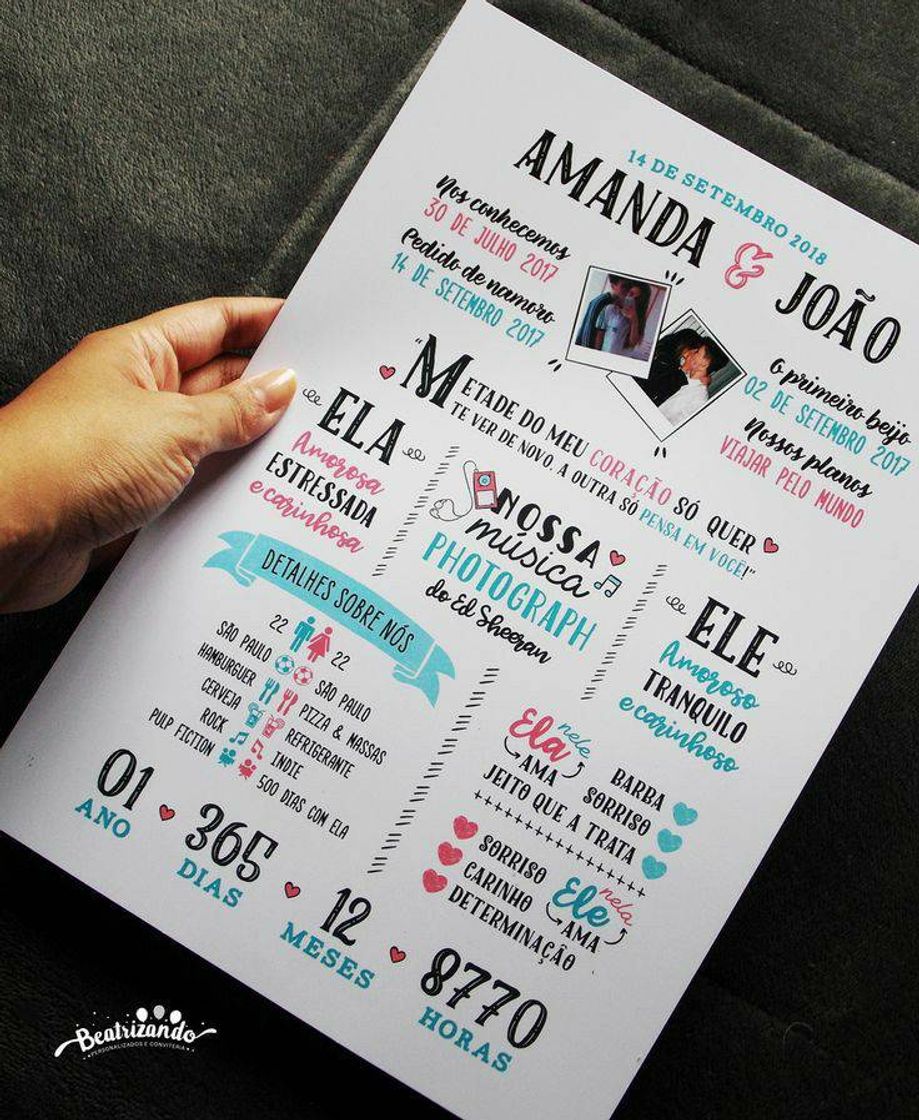 14 DE SETEMBRO 2018
AMANDA & JOÃO
Nos conhecemos
30 DE JULHO 2017
Pedido de namoro
14 DE SETEMBRO 2017
O primeiro beijo
02 DE SETEMBRO 2017
Nossos planos
VIAJAR PELO MUNDO
"METADE DO MEU CORAÇÃO SÓ QUER
TE VER DE NOVO, A OUTRA SÓ PENSA EM VOCÊ!"
ELA
Amorosa
ESTRESSADA
e carinhosa
NOSSA
música
PHOTOGRAPH
do Ed Sheeran
ELE
Amoroso
TRANQUILO
e carinhoso
DETALHES SOBRE NÓS
22 22
SÃO PAULO SÃO PAULO
HAMBURGUER PIZZA & MASSAS
CERVEJA REFRIGERANTE
ROCK INDIE
PULP FICTION 500 DIAS COM ELA
Ela nele
AMA
BARBA
SORRISO
JEITO QUE A TRATA
++++++++++++++++++
SORRISO
CARINHO
DETERMINAÇÃO
Ele nela
AMA
01
ANO
365
DIAS
12
MESES
8770
HORAS
Beatrizando
PERSONALIZADOS E CONVITERIA